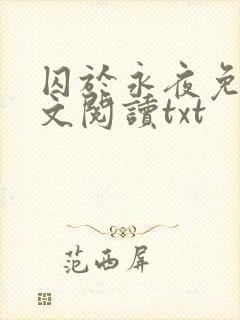 囚於永夜免
文閱讀txt
范西屏